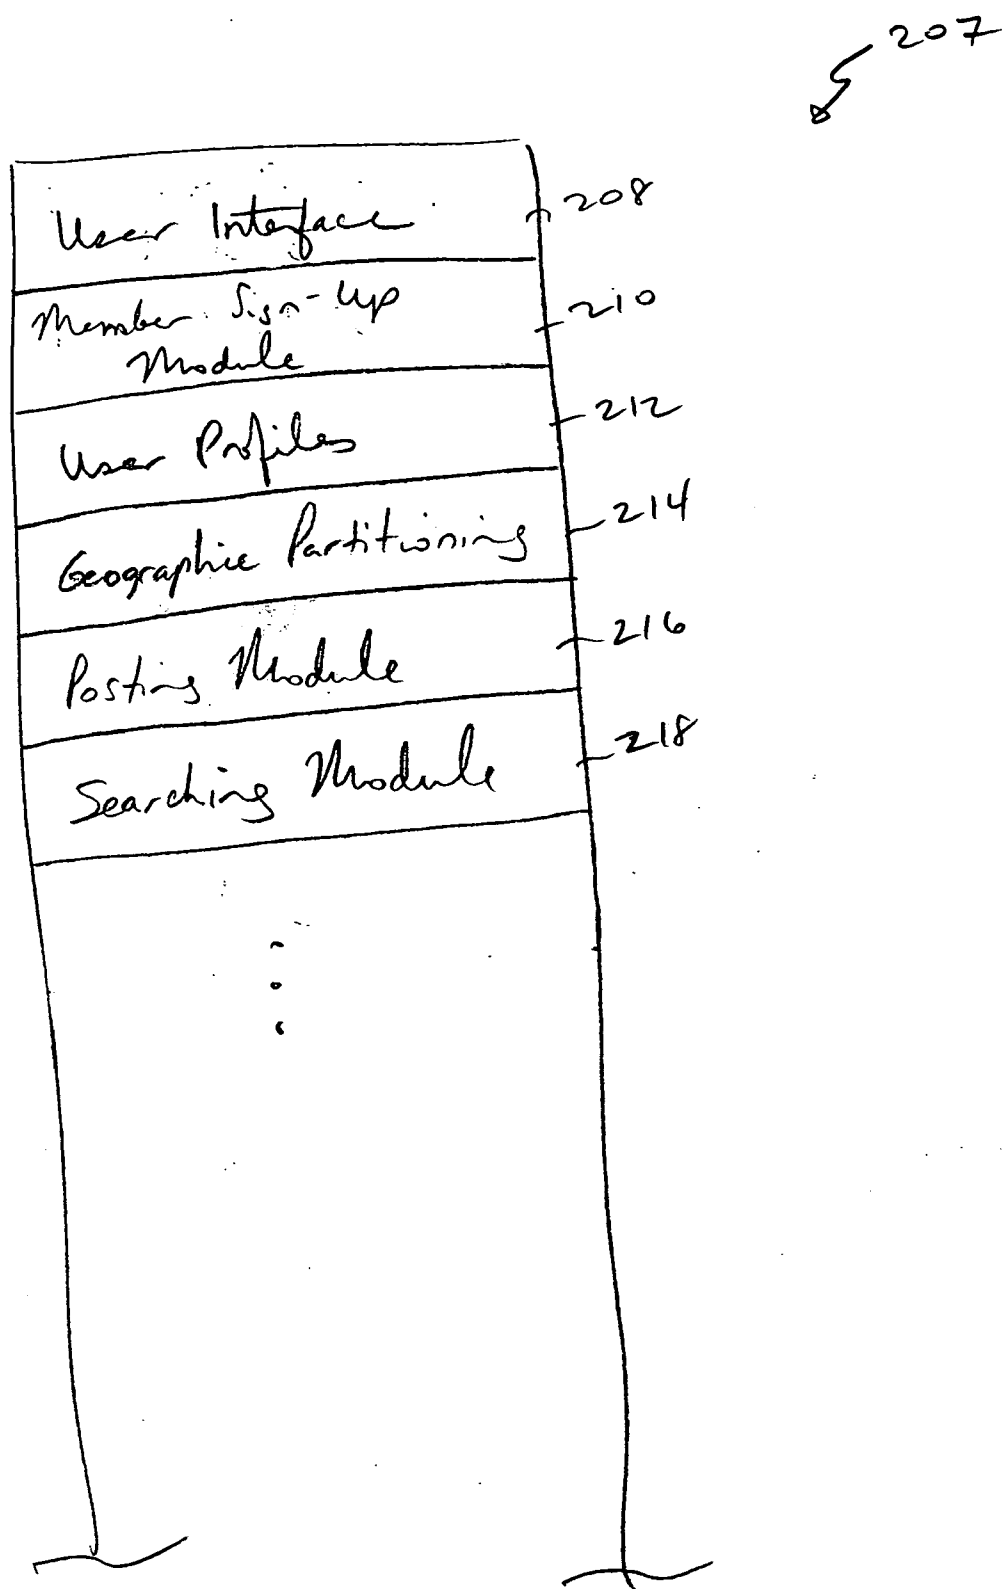 207
User Interface
208
Member Sign-Up
Module
210
User Profiles
212
Geographic Partitioning
214
Posting Module
216
Searching Module
218